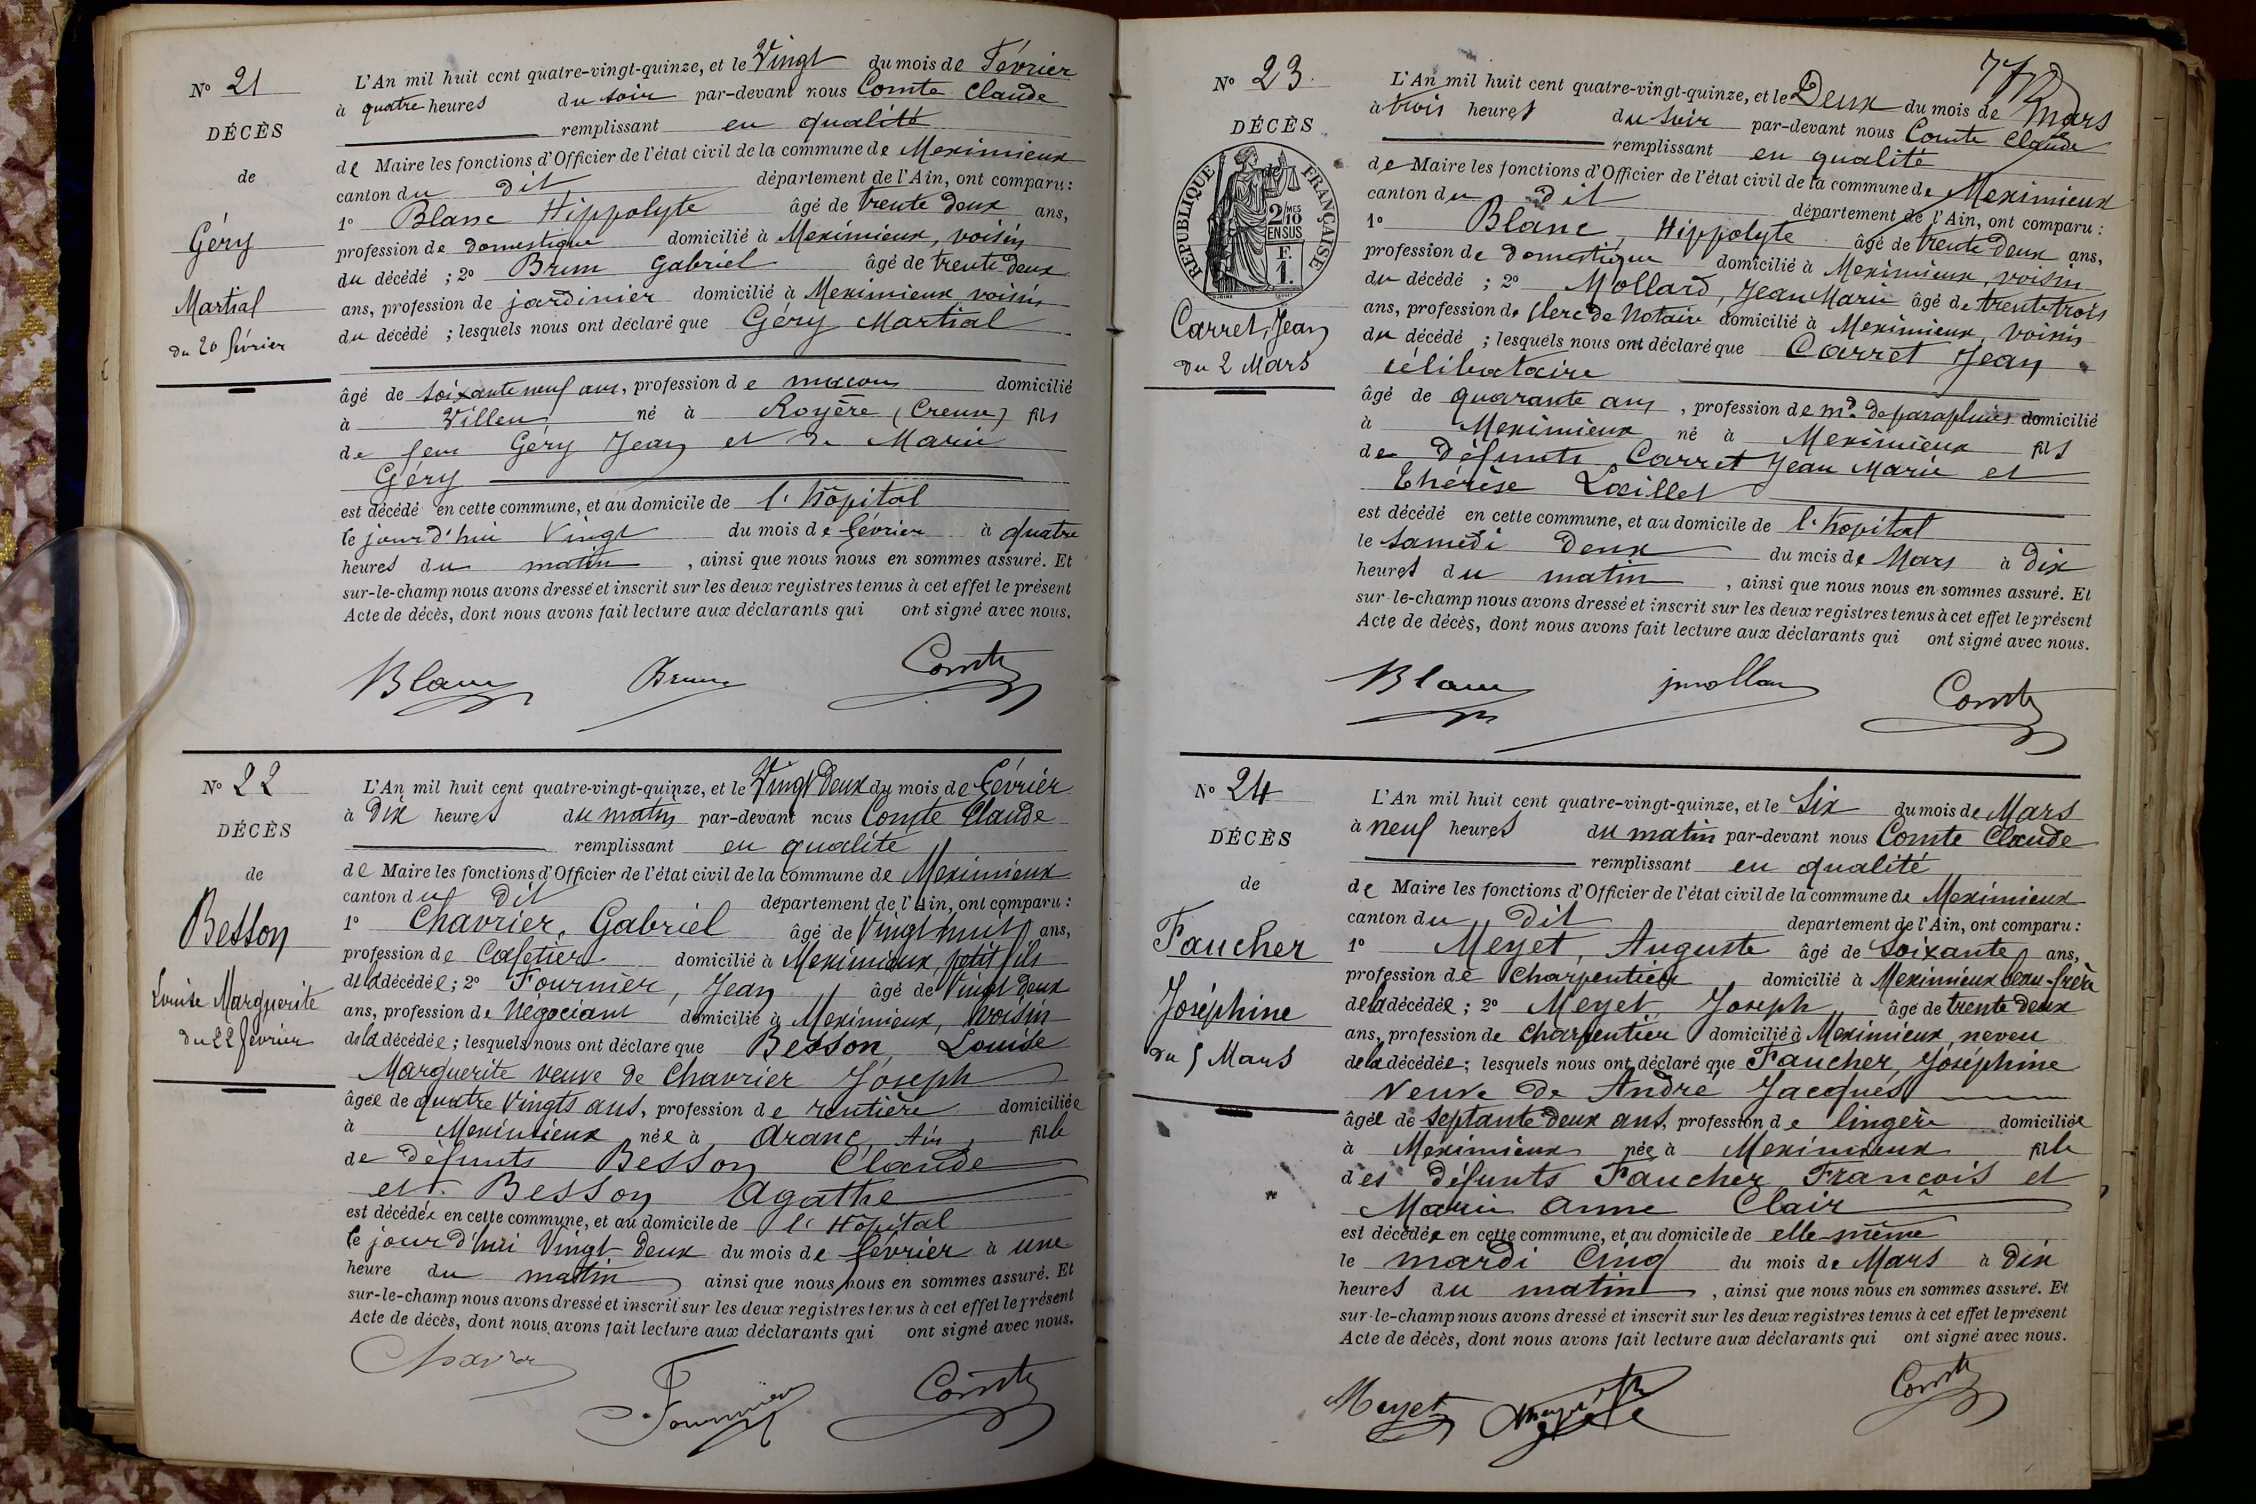 N° 21
DÉCÈS
de
Géry
Martial
du 20 février
L'An mil huit cent quatre-vingt-quinze, et le Vingt du mois de Février
à quatre heures du soir par-devant nous Comte Claude
remplissant en qualité
de Maire les fonctions d'Officier de l'état civil de la commune de Meximieux
canton du dit département de l'Ain, ont comparu :
1° Blanc Hippolyte âgé de trente deux ans,
profession de domestique domicilié à Meximieux, voisin
du décédé ; 2° Brun Gabriel âgé de trente deux
ans, profession de jardinier domicilié à Meximieux voisin
du décédé ; lesquels nous ont déclaré que Géry Martial
âgé de soixante neuf ans, profession de maçon domicilié
à Villeu né à Royère (Creuse) fils
de feu Géry Jean et de Marie
Géry
est décédé en cette commune, et au domicile de l'hôpital
le jourd'hui Vingt du mois de février à quatre
heures du matin, ainsi que nous nous en sommes assuré. Et
sur-le-champ nous avons dressé et inscrit sur les deux registres tenus à cet effet le présent
Acte de décès, dont nous avons fait lecture aux déclarants qui ont signé avec nous.
Blanc Brun Comte
N° 22
DÉCÈS
de
Besson
Louise Marguerite
du 22 février
L'An mil huit cent quatre-vingt-quinze, et le Vingt Deux du mois de Février
à Dix heures du matin par-devant nous Comte Claude
remplissant en qualité
de Maire les fonctions d'Officier de l'état civil de la commune de Meximieux
canton du dit département de l'Ain, ont comparu :
1° Chavrier, Gabriel âgé de Vingt huit ans,
profession de Cafetier domicilié à Meximieux, petit fils
de la décédée ; 2° Fournier, Jean âgé de Vingt deux
ans, profession de Négociant domicilié à Meximieux, voisin
de la décédée ; lesquels nous ont déclaré que Besson, Louise
Marguerite veuve de Chavrier Joseph
âgée de quatre Vingts ans, profession de rentière domiciliée
à Meximieux née à Aranc, Ain, fille
de défunts Besson Claude
et Besson Agathe
est décédée en cette commune, et au domicile de l'Hôpital
le jourd'hui Vingt Deux du mois de février à une
heure du matin ainsi que nous nous en sommes assuré. Et
sur-le-champ nous avons dressé et inscrit sur les deux registres tenus à cet effet le présent
Acte de décès, dont nous avons fait lecture aux déclarants qui ont signé avec nous.
Chavrier Fournier Comte
N° 23
DÉCÈS
RÉPUBLIQUE FRANÇAISE
2/10 MES
EN SUS
F.
1.
Carret, Jean
du 2 Mars
L'An mil huit cent quatre-vingt-quinze, et le Deux du mois de Mars
à trois heures du soir par-devant nous Comte Claude
remplissant en qualité
de Maire les fonctions d'Officier de l'état civil de la commune de Meximieux
canton du dit département de l'Ain, ont comparu :
1° Blanc, Hippolyte âgé de trente deux ans,
profession de Domestique domicilié à Meximieux, voisin
du décédé ; 2° Mollard, Jean Marie âgé de trente trois
ans, profession de Clerc de Notaire domicilié à Meximieux, voisin
du décédé ; lesquels nous ont déclaré que Carret Jean
célibataire
âgé de quarante ans, profession de md de parapluies domicilié
à Meximieux né à Meximieux fils
de défunts Carret Jean Marie et
Thérèse Lœillet
est décédé en cette commune, et au domicile de l'hopital
le samedi Deux du mois de Mars à Dix
heures du matin, ainsi que nous nous en sommes assuré. Et
sur-le-champ nous avons dressé et inscrit sur les deux registres tenus à cet effet le présent
Acte de décès, dont nous avons fait lecture aux déclarants qui ont signé avec nous.
Blanc jmollard Comte
N° 24
DÉCÈS
de
Faucher
Joséphine
du 5 Mars
L'An mil huit cent quatre-vingt-quinze, et le Six du mois de Mars
à neuf heures du matin par-devant nous Comte Claude
remplissant en qualité
de Maire les fonctions d'Officier de l'état civil de la commune de Meximieux
canton du Dit département de l'Ain, ont comparu :
1° Meyet, Auguste âgé de Soixante ans,
profession de Charpentier domicilié à Meximieux beau-frère
de la décédée ; 2° Meyet Joseph âgé de trente deux
ans, profession de charpentier domicilié à Meximieux, neveu
de la décédée ; lesquels nous ont déclaré que Faucher, Joséphine
Veuve de André Jacques
âgée de septante deux ans, profession de lingère domiciliée
à Meximieux née à Meximieux fille
des défunts Faucher François et
Marie Anne Clair
est décédée en cette commune, et au domicile de elle-même
le mardi Cinq du mois de Mars à Dix
heures du matin, ainsi que nous nous en sommes assuré. Et
sur-le-champ nous avons dressé et inscrit sur les deux registres tenus à cet effet le présent
Acte de décès, dont nous avons fait lecture aux déclarants qui ont signé avec nous.
Meyet Comte